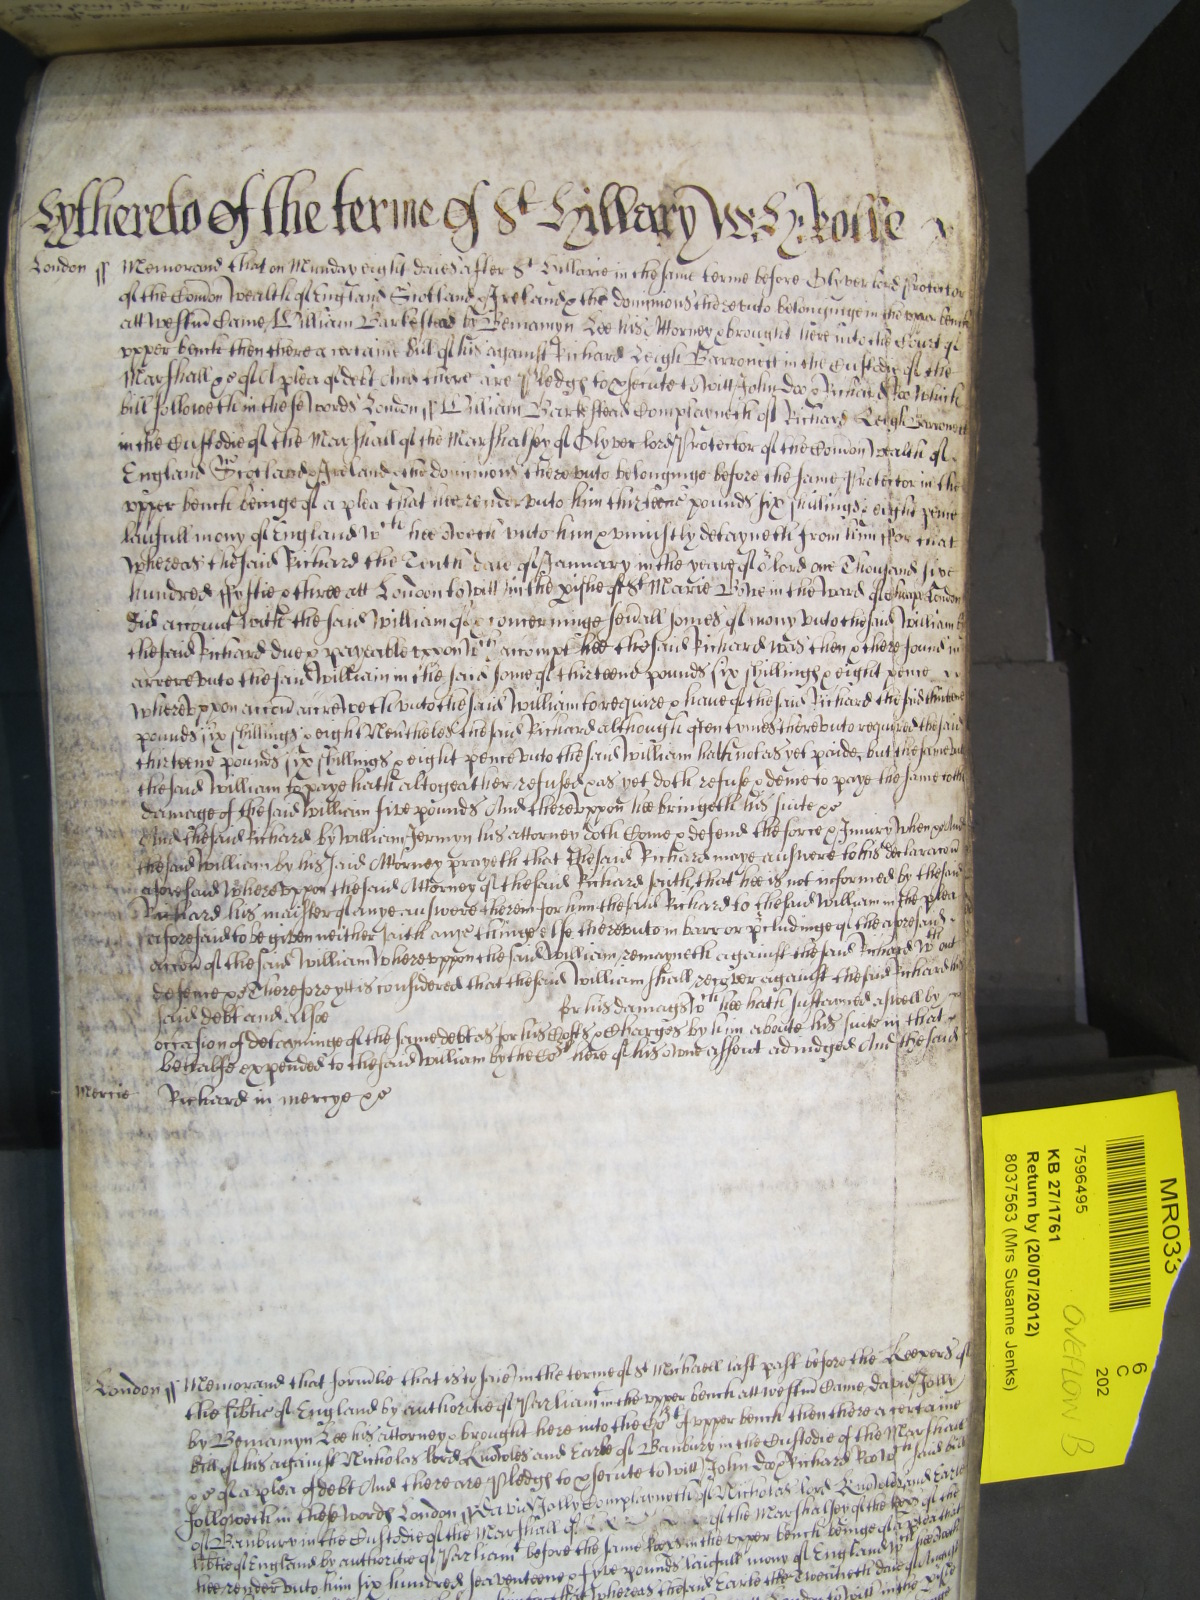 Hythereto of the terme of St Hillary W: H: Rolle
London ss Memorand that on Munday eight daies after St Hillarie in the same terme before Olyver lord Protector
of the Comon Wealth of England Scotland & Ireland & the dominions therevnto belonginge in the vpper bench
att Westm Came William Barkestead by Beniamyn Lee his Attorney & brought here into the Court of
vpper bench then there a certaine Bill of his against Richard Leigh Barronett in the Custodie of the
Marshall &c of A plea of debt And there are Pledgs to psecute to witt John Doo & Richard Roo Which
bill followeth in these words London ss William Barkestead Complayneth of Richard Leigh Barronett
in the Custodie of the Marshall of the Marshalsey of Olyver lord Protector of the Comon Wealth of
England Scotland & Ireland & the dominions therevnto belonginge before the same Protector in the
vpper bench beinge of a plea that hee render vnto him thirteene pounds six shillings & eight pence
laufull mony of England wch hee oweth vnto him & vniustly detayneth from him For that
Whereas the said Richard the Tenth daie of January in the yeare of or lord one Thousand six
hundred Fyftie & three att London to witt in the pishe of St Marie Bowe in the Ward of Cheape London
did account with the said William of & concerninge seuall somes of mony vnto the said William by
the said Richard due & payeable vppon wch accompt hee the said Richard was then & there found in
arrere vnto the said William in the said some of thirteene pounds six shillings & eight pence
Wherevppon accon accreweth vnto the said William to require & haue of the said Richard the said thirteene
pounds six shillings & eight Neutheles the said Richard although often tymes therevnto required the said
thirteene pounds six shillings & eight pence vnto the said William hath not as yet paide, but the same vnto
the said William to paye hath altogeather refused & as yet doth refuse & denie to paye the same to the
damage of the said William five pounds And therevppon hee bringeth his suite &c
And the said Richard by William Jermyn his attorney doth Come & defend the force & Iniury when &c And
the said William by his said Attorney prayeth that the said Richard maye answere to his declaracon
aforesaid Wherevppon the said Attorney of the said Richard saith, that hee is not informed by the said
Richard his maister of anye answere therein for him the said Richard to the said William in the plea
aforesaid to be given neither saith anye thinge else therevnto in barr or pcludinge of the aforesaid
accon of the said William Wherevppon the said William remayneth against the said Richard wthout
defense &c Therefore ytt is considered that the said William shall recover against the said Richard his
said debt and Alsoe for his damags wch hee hath sustayned aswell by
occasion of detayninge of the same debt as for his Costs & Charges by him aboute his suite in that
behalfe expended to the said William by the Cort here of his owne assent adiudged And the said
Mercie Richard in mercye &c
London ss Memorand that formlie that is to saie in the terme of St Michaell last past before the Keepers of
the libtie of England by authoritie of Parliamt in the vpper bench att Westm Came David Jolly
by Beniamyn Lee his attorney & brought here into the Cort of vpper bench then there a certaine
Bill of his against Nicholas lord Knowles and Earle of Banbury in the Custodie of the Marshall
&c of a plea of debt And there are Pledgs to psecute to witt John Doo & Richard Roo Wch said bill
followeth in these words London ss David Jolly Complayneth of Nicholas lord Knowles and Earle
of Banbury in the Custodie of the Marshall of the Marshalsey of the Keeps of the
libtie of England by authoritie of Parliamt before the same Keeps in the vpper bench beinge of a plea that
hee render vnto him six hundred seaventeene & fyve pounds laufull mony of England wch
that Whereas the said Earle the Twentieth daie of August
London to witt in the pishe
MR033
6
C
202
7596495
KB 27/1761
Return by (20/07/2012)
8037563 (Mrs Susanne Jenks)
OVEFLOW B